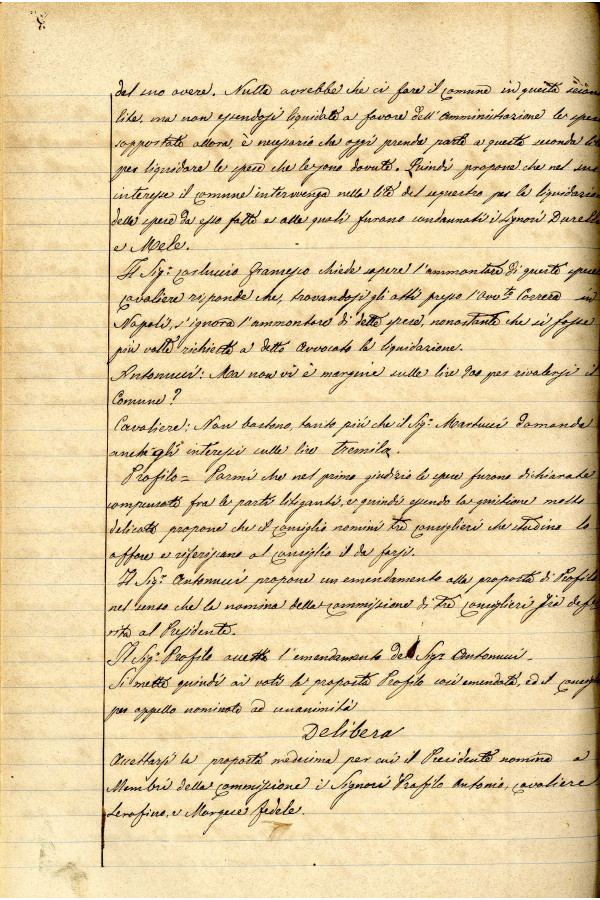 del suo avere. Nulla avrebbe che ci fare il comune in questa
lite, ma non essendosi liquidate a favore dell'amministrazione le spese
sopportate allora, è necessario che oggi prenda parte a questa seconda
per liquidare le spese che le sono dovute. Quindi propone che nel suo
interesse il comune intervenga nella lite del sequestro per la liquidazio
delle spese da esso fatte e alle quali furono condannati i Signori
e Mele.
Il Sigr. Carluccio Francesco chiede sapere l'ammontare di queste spese
Cavaliere risponde che, trovandosi gli atti presso l'Avvto. Correra in
Napoli, s'ignora l'ammontare di dette spese, nonostante che si fosse
più volte richiesta a detto Avvocato la liquidazione.
Antonucci: Ma non vi è margine sulle lire 900 per rivalersi il
Comune?
Cavaliere: Non bastano, tanto più che il Sigr. Martucci domanda
anch'gli interessi sulle lire tremila.
Profilo = Parmi che nel primo giudizio le spese furono dichiarate
compensate fra le parti litiganti, e quindi essendo la quistione molto
delicata propone che il consiglio nomini tre consiglieri che studino lo
affare e riferiscano al consiglio il da farsi.
Il Sigr. Antonucci propone un emendamento alla proposta di Profilo
nel senso che la nomina della commissione di tre consiglieri sia defe
rita al Presidente.
Il Sigr. Profilo accetta l'emendamento del Sigr. Antonucci.
Si mette quindi ai voti la proposta Profilo così emendata, ed il consiglio
per appello nominale ad unanimità
Delibera
Accettarsi la proposta medesima per cui il Presidente nomina a
Membri della commissione i Signori Profilo Antonio, Cavaliere
Serafino, e Margese Fedele.